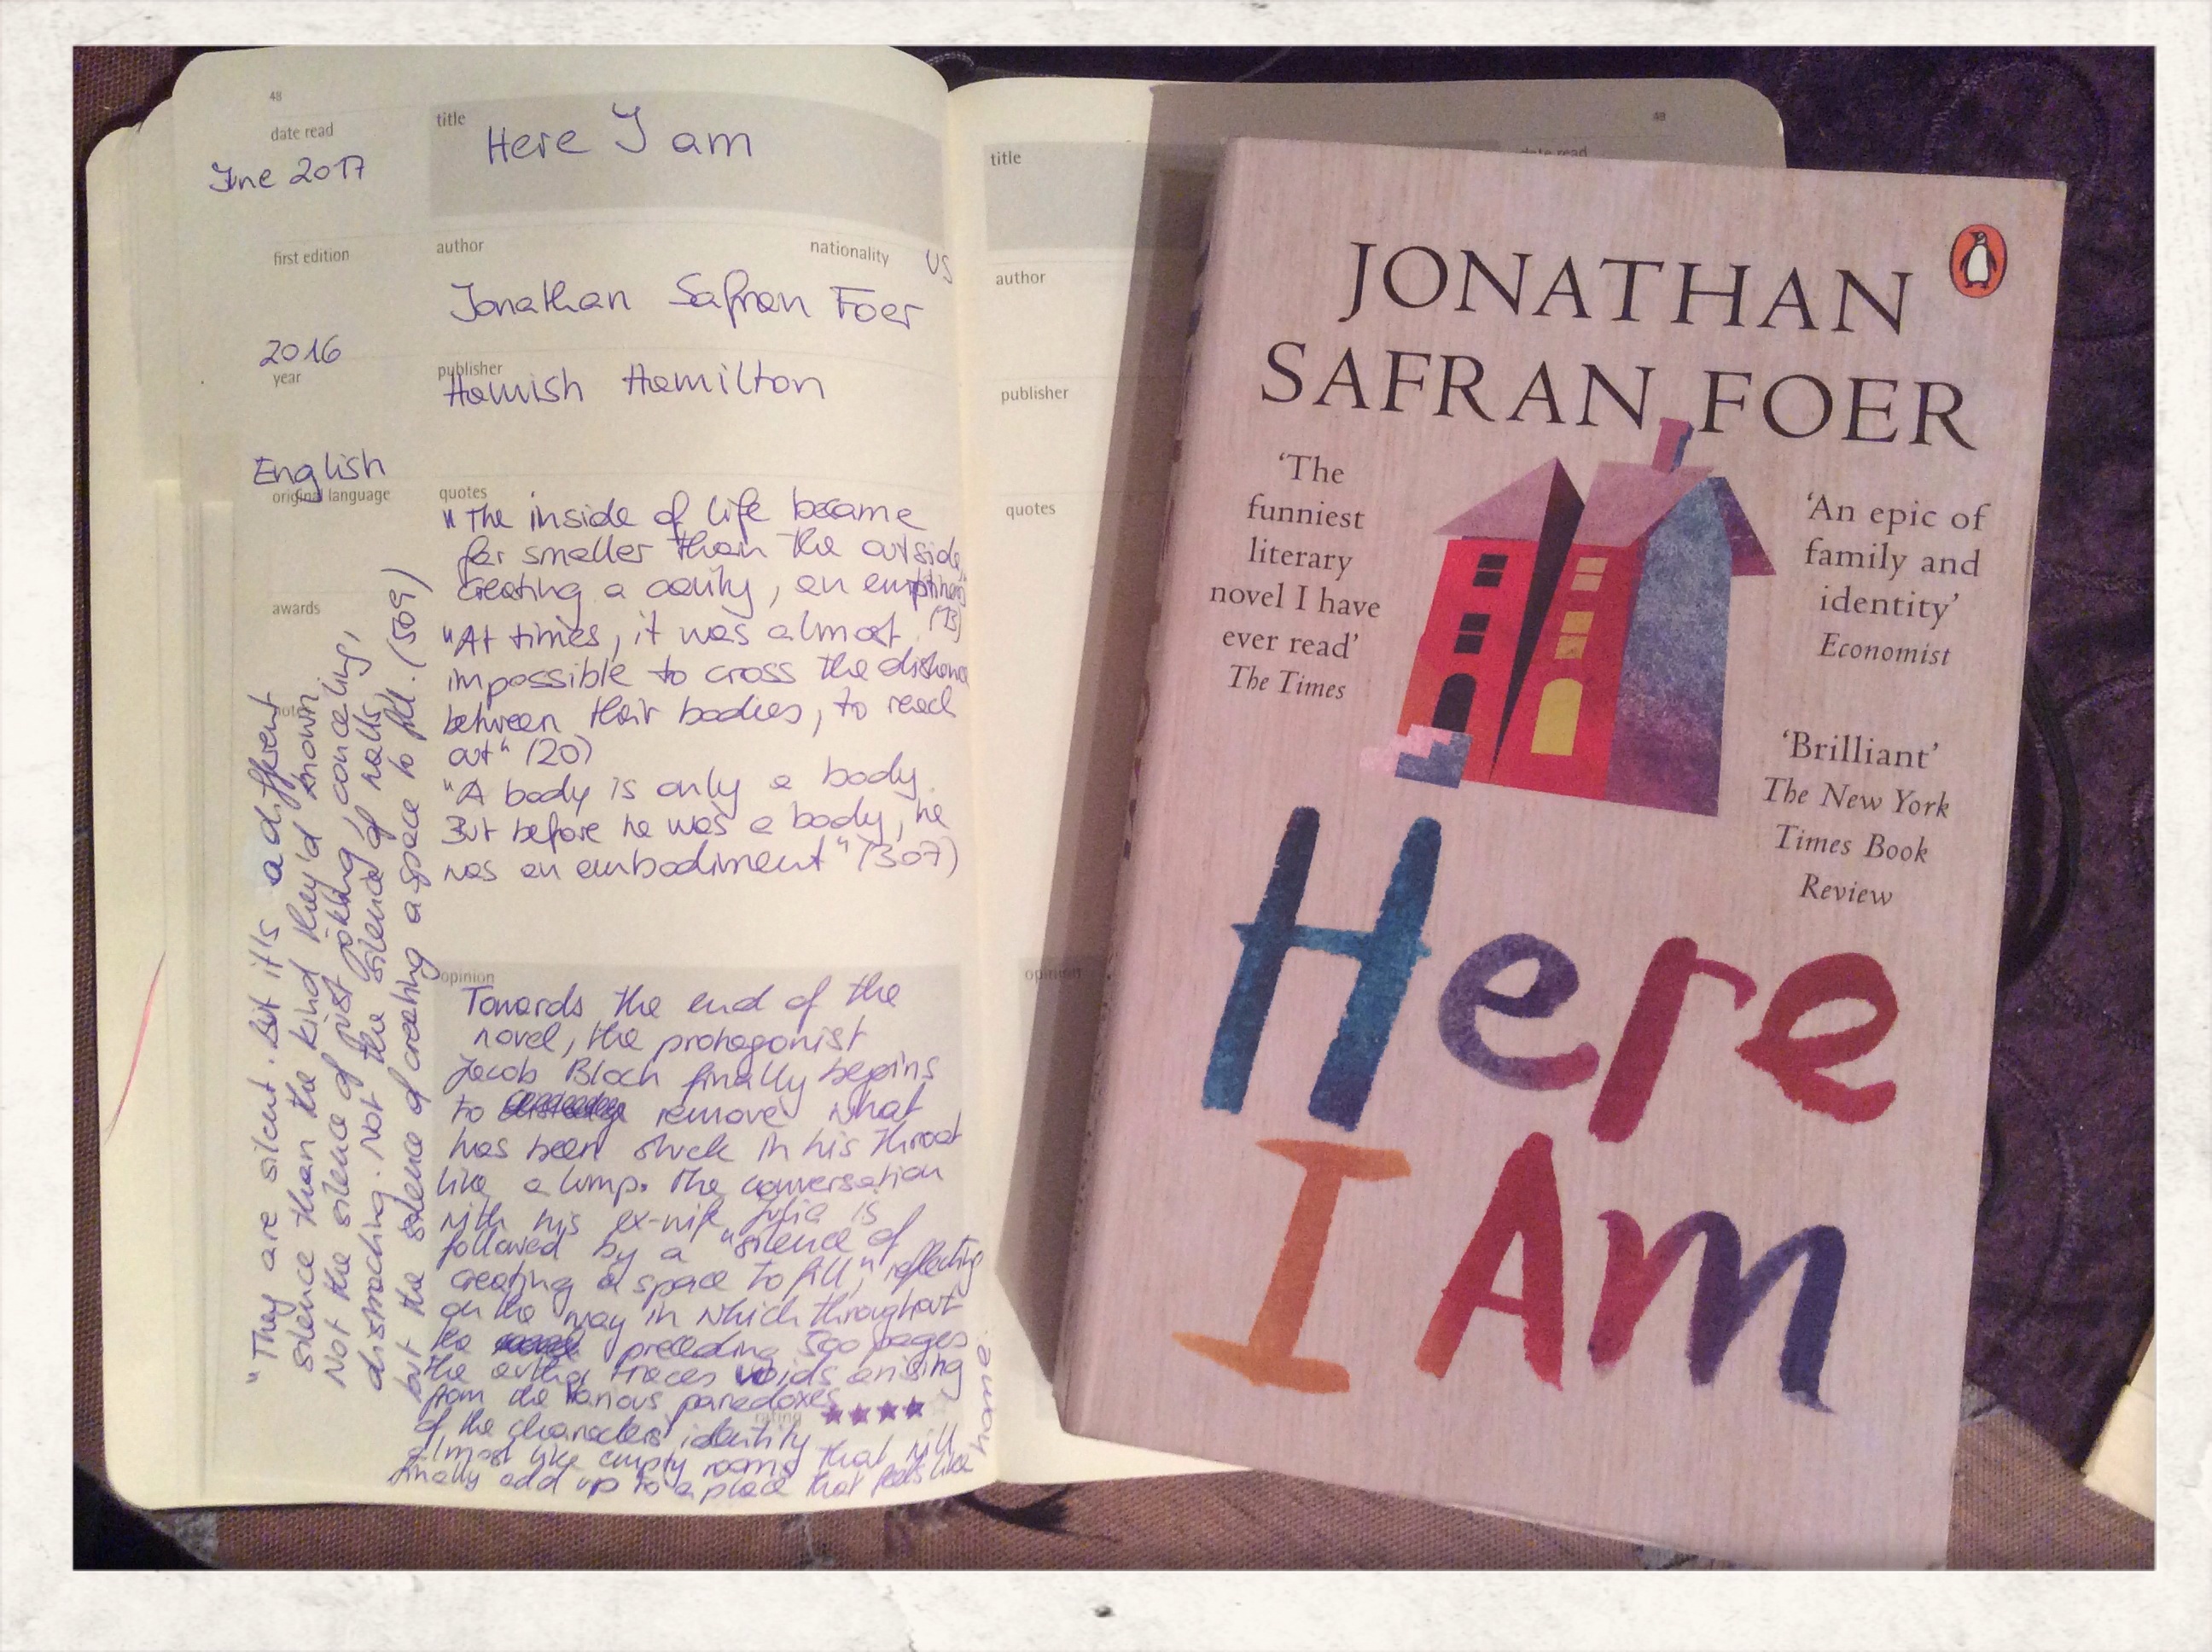 48
date read
June 2017
title
Here I am
first edition
2016
author
nationality
US
Jonathan Safran Foer
year
publisher
Hamish Hamilton
English
original language
quotes
"The inside of life became
far smaller than the outside,
creating a cavity, an emptiness"
"At times, it was almost
impossible to cross the distance
between their bodies, to reach
out" (20)
"A body is only a body.
But before he was a body, he
was an embodiment" (307)
awards
notes
"They are silent. But it's a different
silence than the kind they'd known.
Not the silence of just joking, concealing,
distracting. Not the silence of walls,
but the silence of creating a space to fill. (509)
opinion
Towards the end of the
novel, the protagonist
Jacob Bloch finally begins
to remove what
has been stuck in his throat
like a lump. The conversation
with his ex-wife Julia is
followed by a "silence of
creating a space to fill", reflecting
on the way in which throughout
the preceding 500 pages
the author traces voids arising
from the various paradoxes
rating ★★★★
of the characters' identity
almost like empty rooms that will
finally add up to a place that feels like
home.
48
title
date read
author
publisher
quotes
opinion
JONATHAN
SAFRAN FOER
'The
funniest
literary
novel I have
ever read'
The Times
'An epic of
family and
identity'
Economist
'Brilliant'
The New York
Times Book
Review
Here
I Am